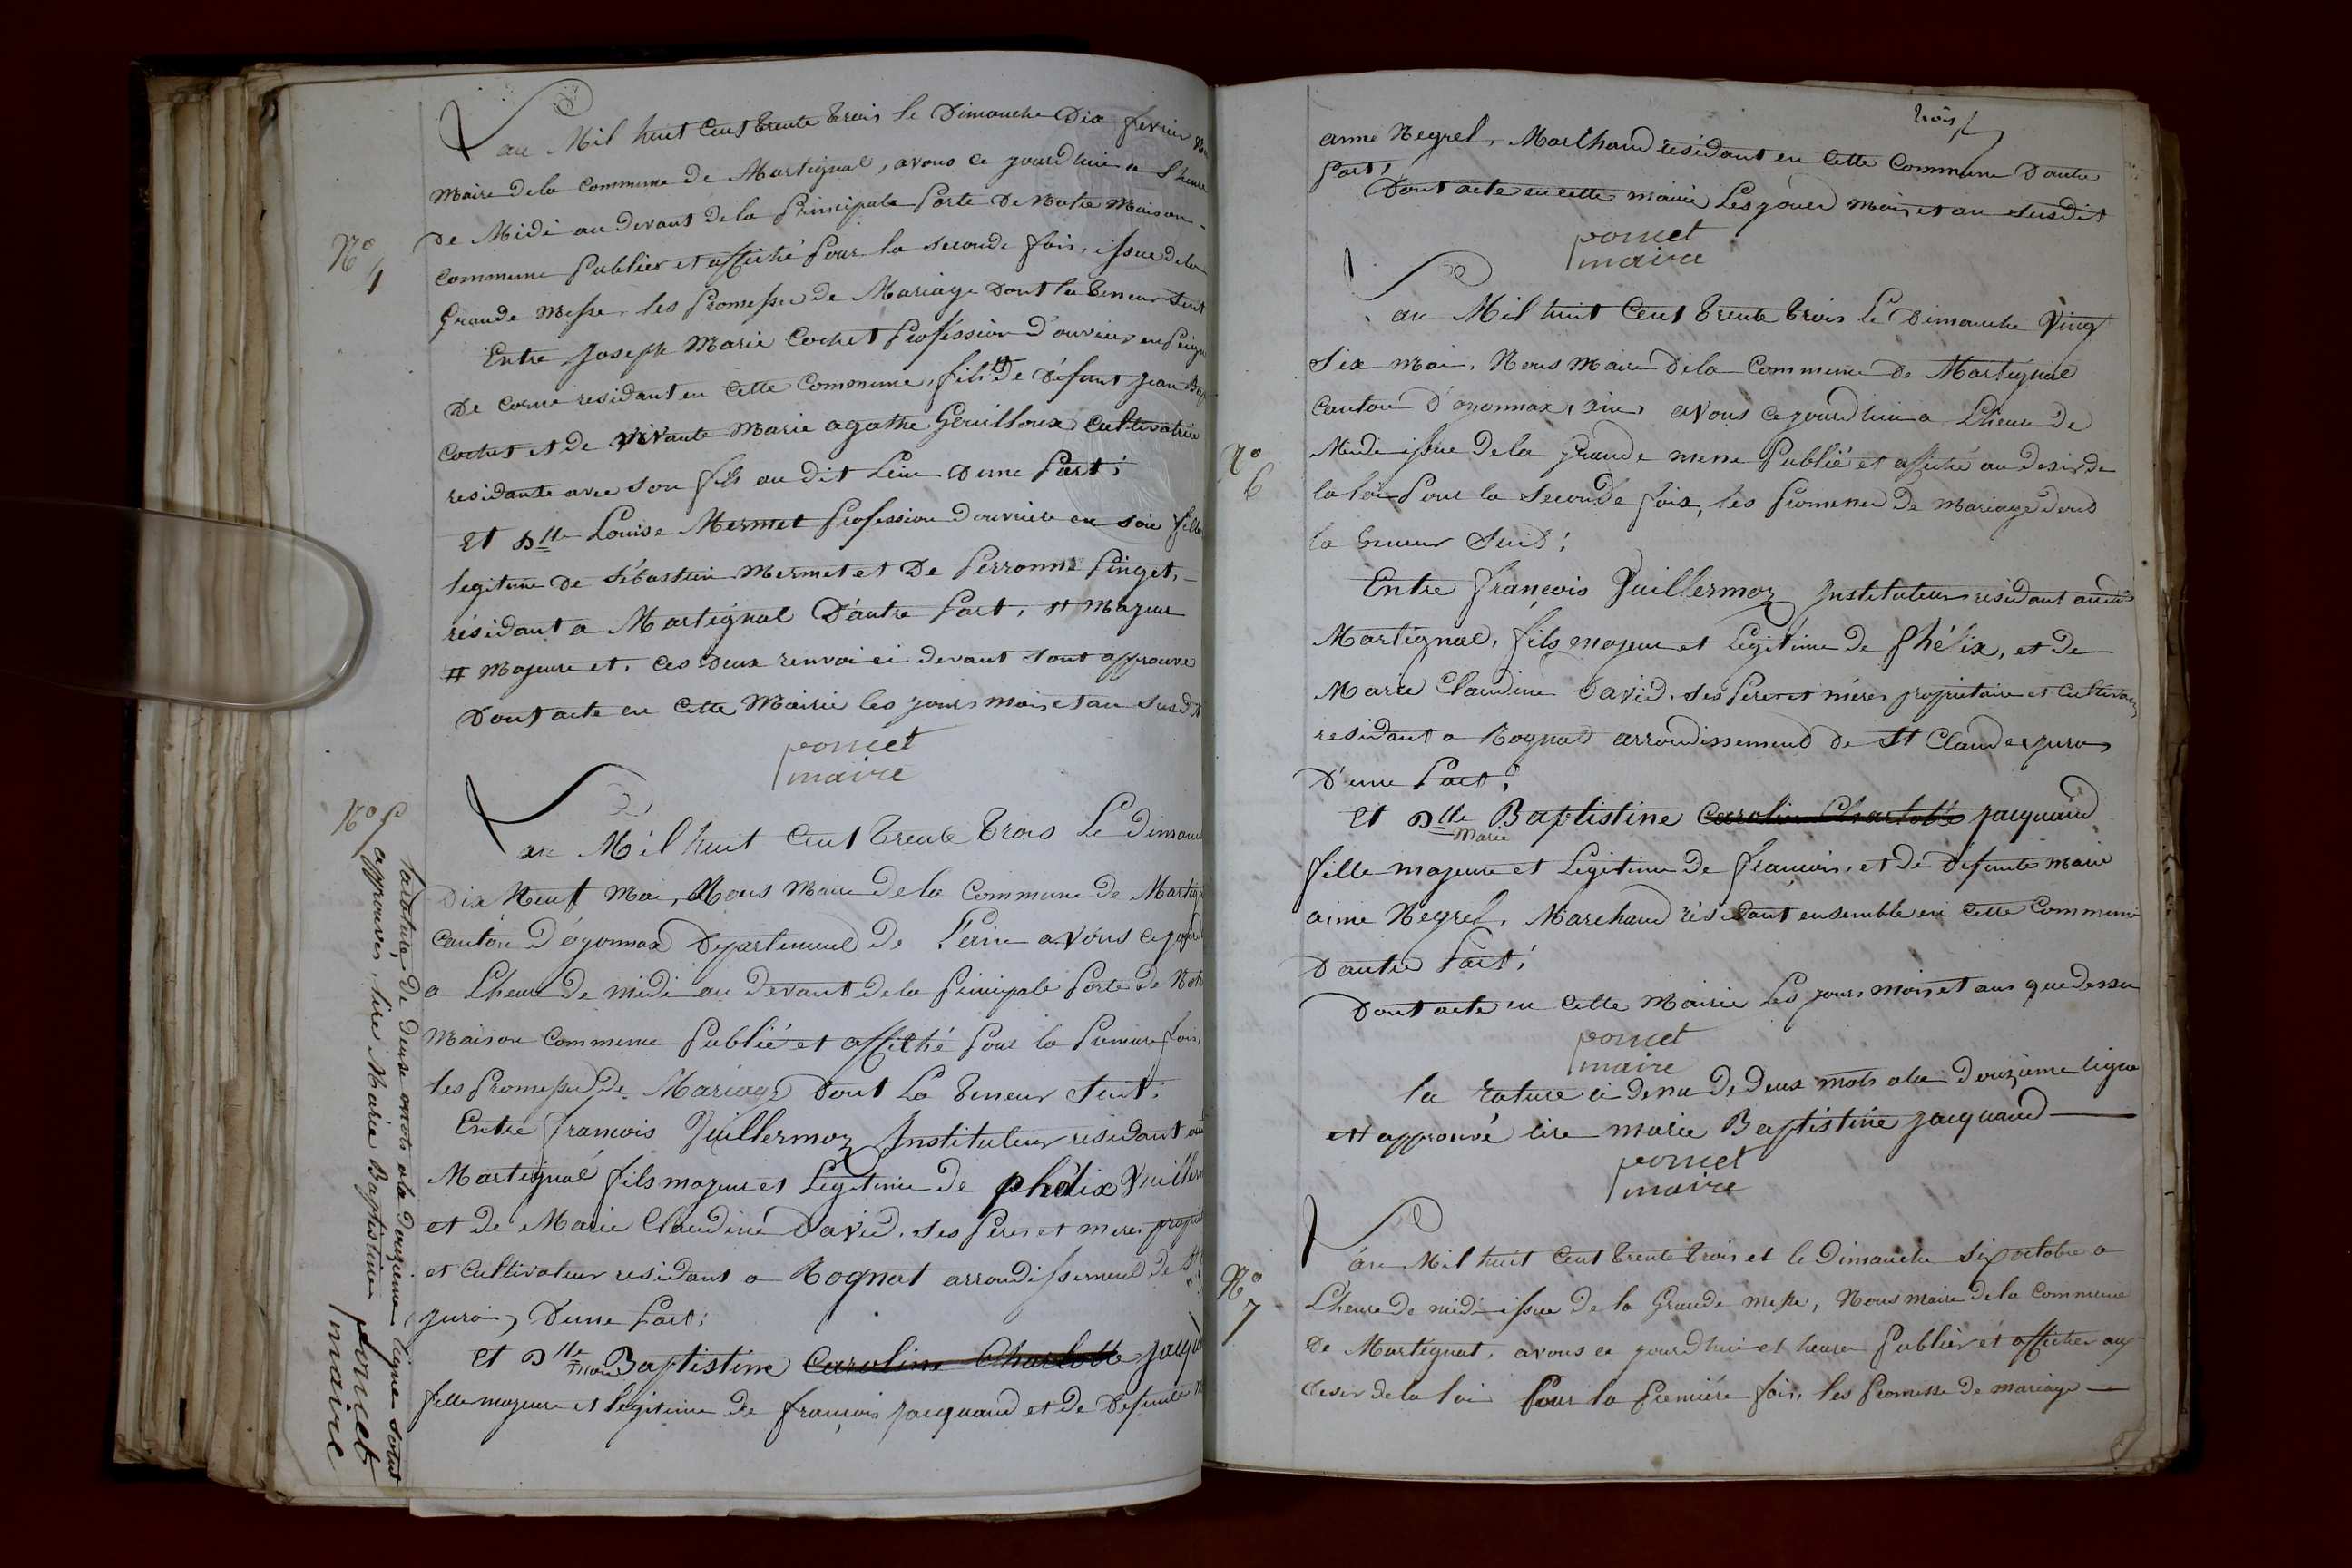 N° 4
an Mil huit Cent trente trois le Dimanche Dix fevrier
Maire dela Commune de Martignat, avons ce jourd'hui a l'heure
De Midi au devant dela Principale Porte De Notre Maison
Commune Publier et affiché Pour la seconde fois, issue dela
Grande Messe, les Promesses de Mariage Dont la teneur suit
Entre Joseph Marie Cochet Profession d'ouvrier en Peigne
De Corne residant en Cette Commune, fils # De Défunt Jean Bap
Cochet et de vivante Marie agathe Genilloux Cultivatrice
residante avec son fils au dit Lieu D'une Part;
Et Dlle Louise Mermet Profession D'ouvriere en soie fille
legitime de Sébastien Mermet et De Perronne Pinget,
résidant a Martignat D'autre Part, # Majeur
# Majeure et, ces deux renvoi ci devant sont approuvé
Dont acte en Cette Mairie les jours mois et an susdit
poncet
maire
N° 5
an Mil huit Cent trente trois Le Dimanc
Dix Neuf Mai, Nous Maire dela Commune de Martign
Canton D'oyonnax Departement de l'ain avons ce jourd
a L'heure de midi au devant dela Principale Porte de Notre
Maison Commune Publié et affiché Pour la Premiere fois,
les Promesse de Mariage Dont La teneur Suit:
Entre francois Vuillermoz Instituteur residant au
Martignat fils majeur et Legitime de phélix Vuiller
et de Marie Claudine David, ses Peres et meres propri
et Cultivateur residant a Rognat arrondissement de St
Jura, D'une Part;
Et Dlle Marie Baptistine Caroline Charlotte Jacqu
fille majeure et légitime de françois Jacquand et de Defunte
la rature, de deuse mots a la douzieme ligne sont
approuvés, lire Marie Baptistine
poncet
maire
trois
anne Neyrel, Marchand résidant en Cette Commune D'autre
Part;
Dont acte en cette mairie Les jours mois et an susdit
poncet
maire
N° 6
an Mil huit Cent trente trois Le Dimanche Vingt
Six mai, Nous Maire dela Commune De Martignat
Canton D'oyonnax, ain, avons ce jourd'hui a L'heure de
Midi issue De la Grande messe Publié et affiché au desir de
la loi Pour la seconde fois, les Promesses De mariage dont
la teneur Suit:
Entre françois Vuillermoz Instituteur residant audit
Martignat, fils majeur et Légitime de Phélix, et de
Marie Claudine David, ses Peres et méres propriétaire et Cultivateurs
residant a Rognat arrondissement de St Claude, Jura,
D'une Part;
Et Dlle Marie Baptistine Caroline Charlotte Jacquand
fille majeure et Légitime de françois, et de défunte Marie
anne Neyrel, Marchand résidant ensemble en cette Commune
D'autre Part;
Dont acte en Cette Mairie Les jours mois et ans que dessu
poncet
maire
la rature ci dessu de deux mots ala douzieme ligne
est approuvé lire marie Baptistine Jacquand
poncet
maire
N° 7
an Mil huit Cent trente trois et le Dimanche Six octobre a
L'heure de midi issue de la Grande messe, Nous maire dela Commune
De Martignat, avons ce jourd'hui et heure Publier et afficher au
desir dela loi Pour la Premiére fois, les Promesse de mariage